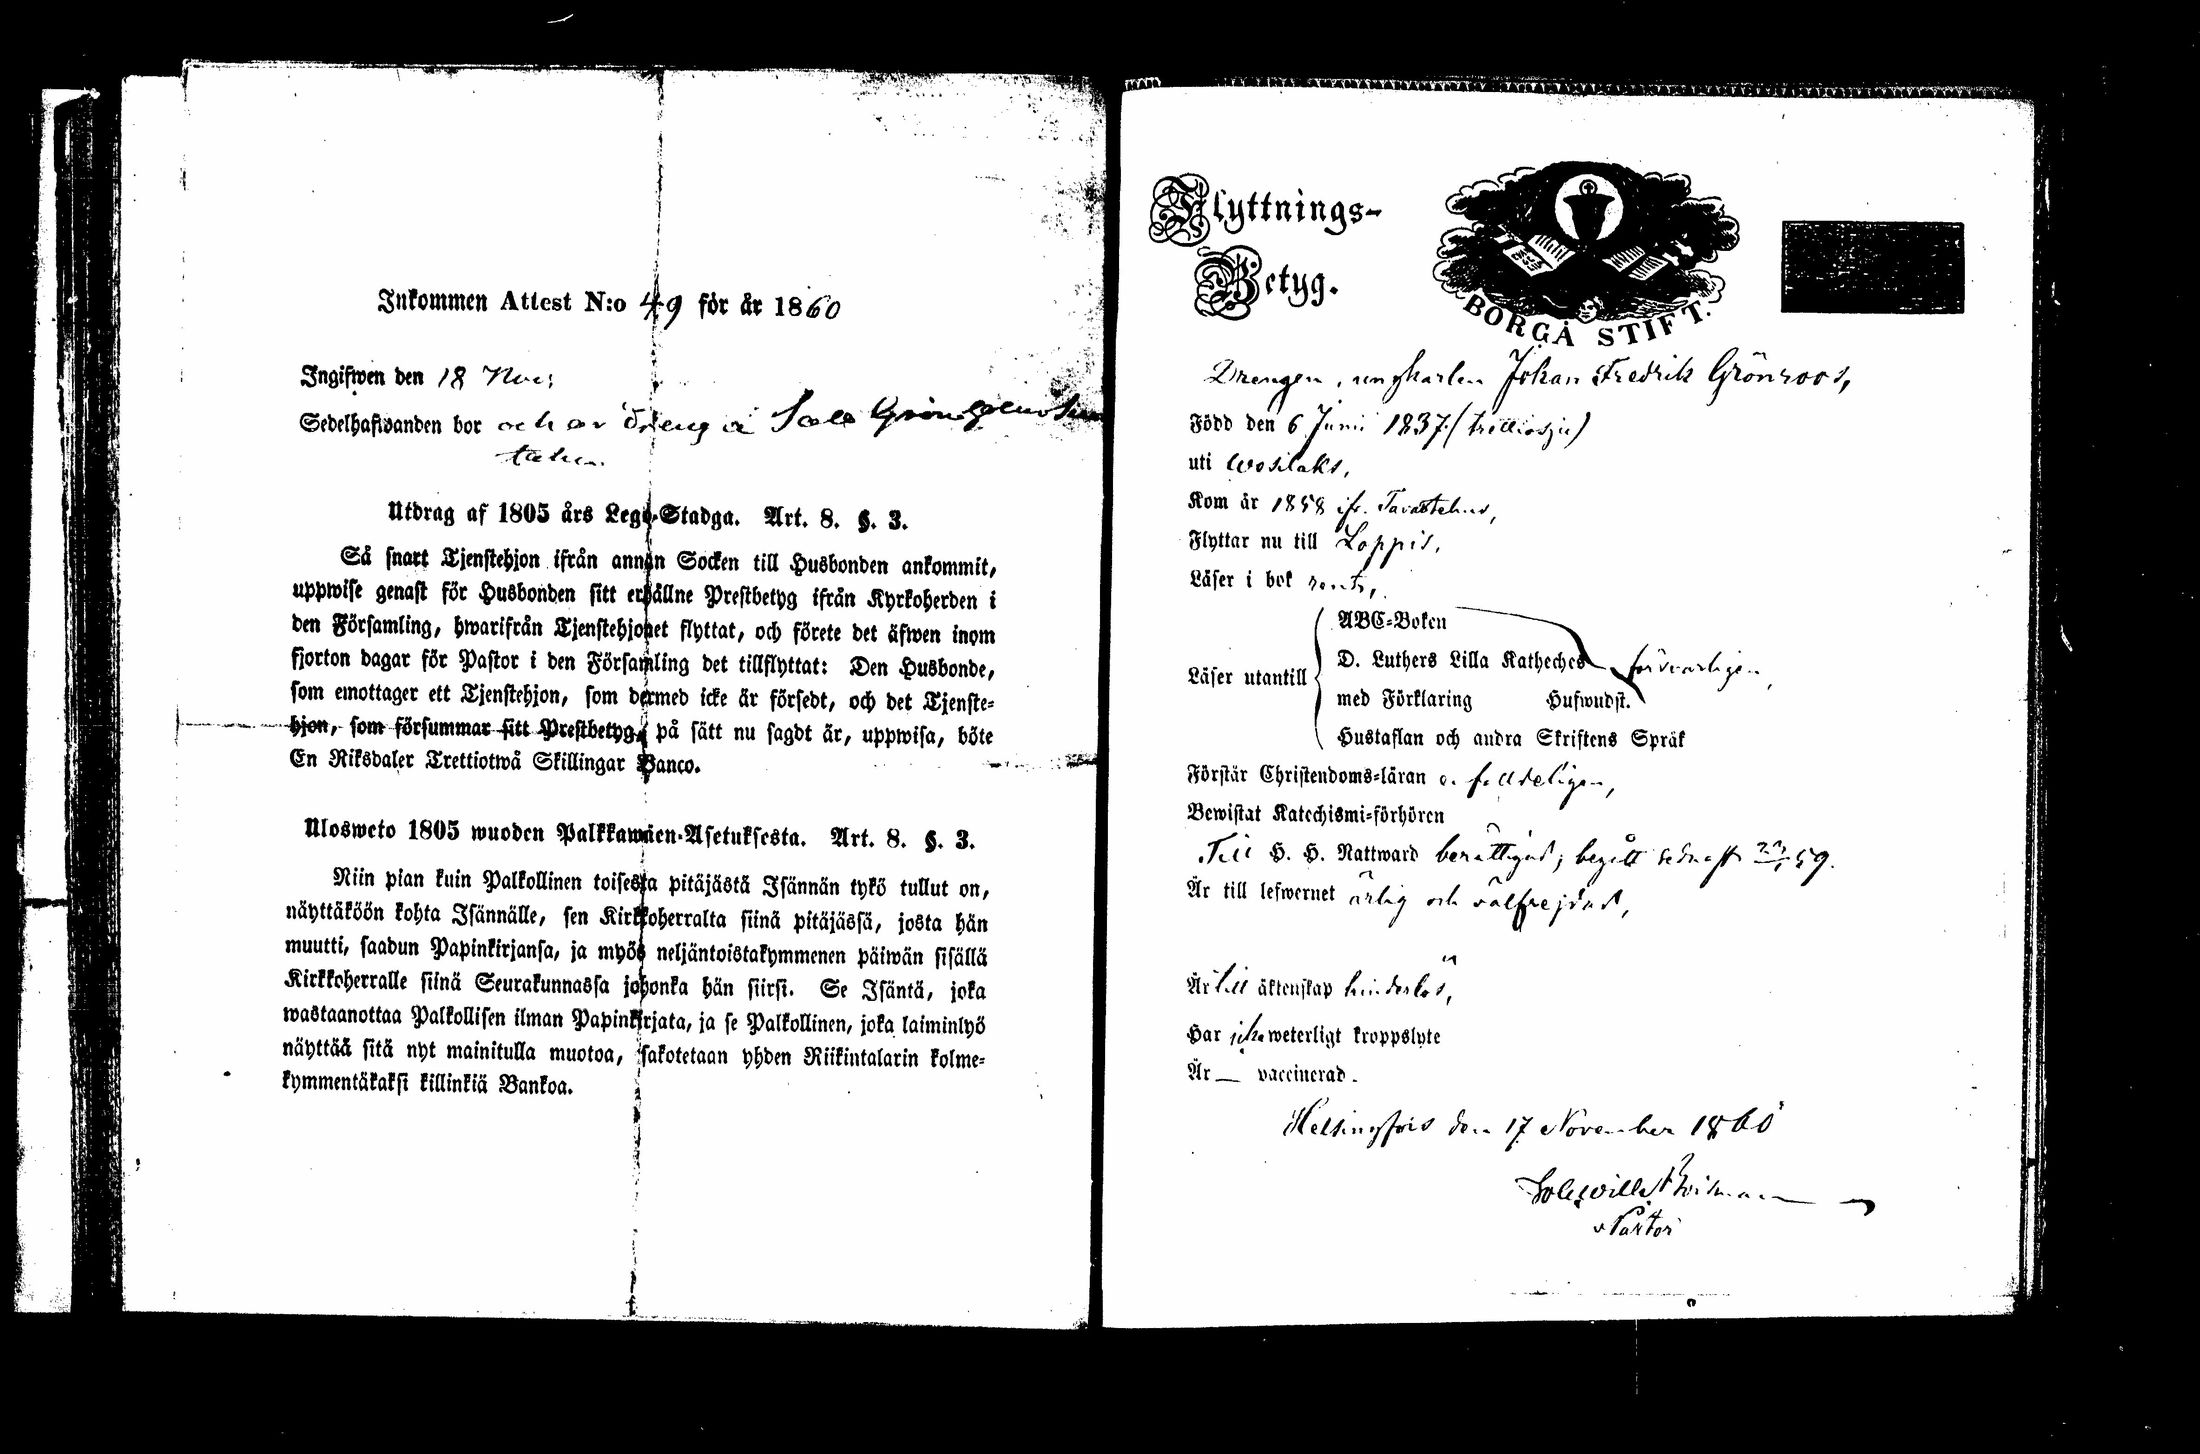 Inkommen Attest N:o 49 för år 1860
Ingifwen den 18 Nov:
Sedelhafwanden bor och är dreng å
Utdrag af 1805 års Lego-Stadga. Art. 8. §. 3.
Så snart Tjenstehjon ifrån annan Socken till Husbonden ankommit,
uppwise genast för Husbonden sitt erhållne Prestbetyg ifrån Kyrkoherden i
den Församling, hwarifrån Tjenstehjonet flyttat, och förete det äfwen inom
fjorton dagar för Pastor i den Församling det tillflyttat: Den Husbonde,
som emottager ett Tjenstehjon, som dermed icke är försedt, och det Tjenste-
hjon, som försummar sitt Prestbetyg, på sätt nu sagdt är, uppwisa, böte
En Riksdaler Trettiotwå Skillingar Banco.
Ulosweto 1805 wuoden Palkkawäen-Asetuksesta. Art. 8. §. 3.
Niin pian kuin Palkollinen toisesta pitäjästä Isännän tykö tullut on,
näyttäköön kohta Isännälle, sen Kirkkoherralta siinä pitäjässä, josta hän
muutti, saadun Papinkirjansa, ja myös neljäntoistakymmenen päiwän sisällä
Kirkkoherralle siinä Seurakunnassa johonka hän siirsi. Se Isäntä, joka
wastaanottaa Palkollisen ilman Papinkirjata, ja se Palkollinen, joka laiminlyö
näyttää sitä nyt mainitulla muotoa, sakotetaan yhden Riikintalarin kolme-
kymmentäkaksi killinkiä Bankoa.
Flyttnings-
Betyg.
BORGÅ STIFT.
Drengen, ungkarlen Johan Fredrik Grönroos,
Född den 6 Junii 1837 (trettiosju)
uti
Kom år 1858 ifr. Tavastehus,
Flyttar nu till Loppis,
Läser i bok rent,
ABC-Boken
D. Luthers Lilla Kateches försvarligen,
Läser utantill
med Förklaring Hufwudst.
Hustaflan och andra Skriftens Språk
Förstår Christendoms-läran
Bewistat Katechismi-förhören
Till H. H. Nattward berättigad; begått sednast 59.
Är till lefwernet ärlig och välfrejdad,
Är till äktenskap hinderlös,
Har icke weterligt kroppslyte
Är — vaccinerad.
Helsingfors den 17 November 1860
Pastor